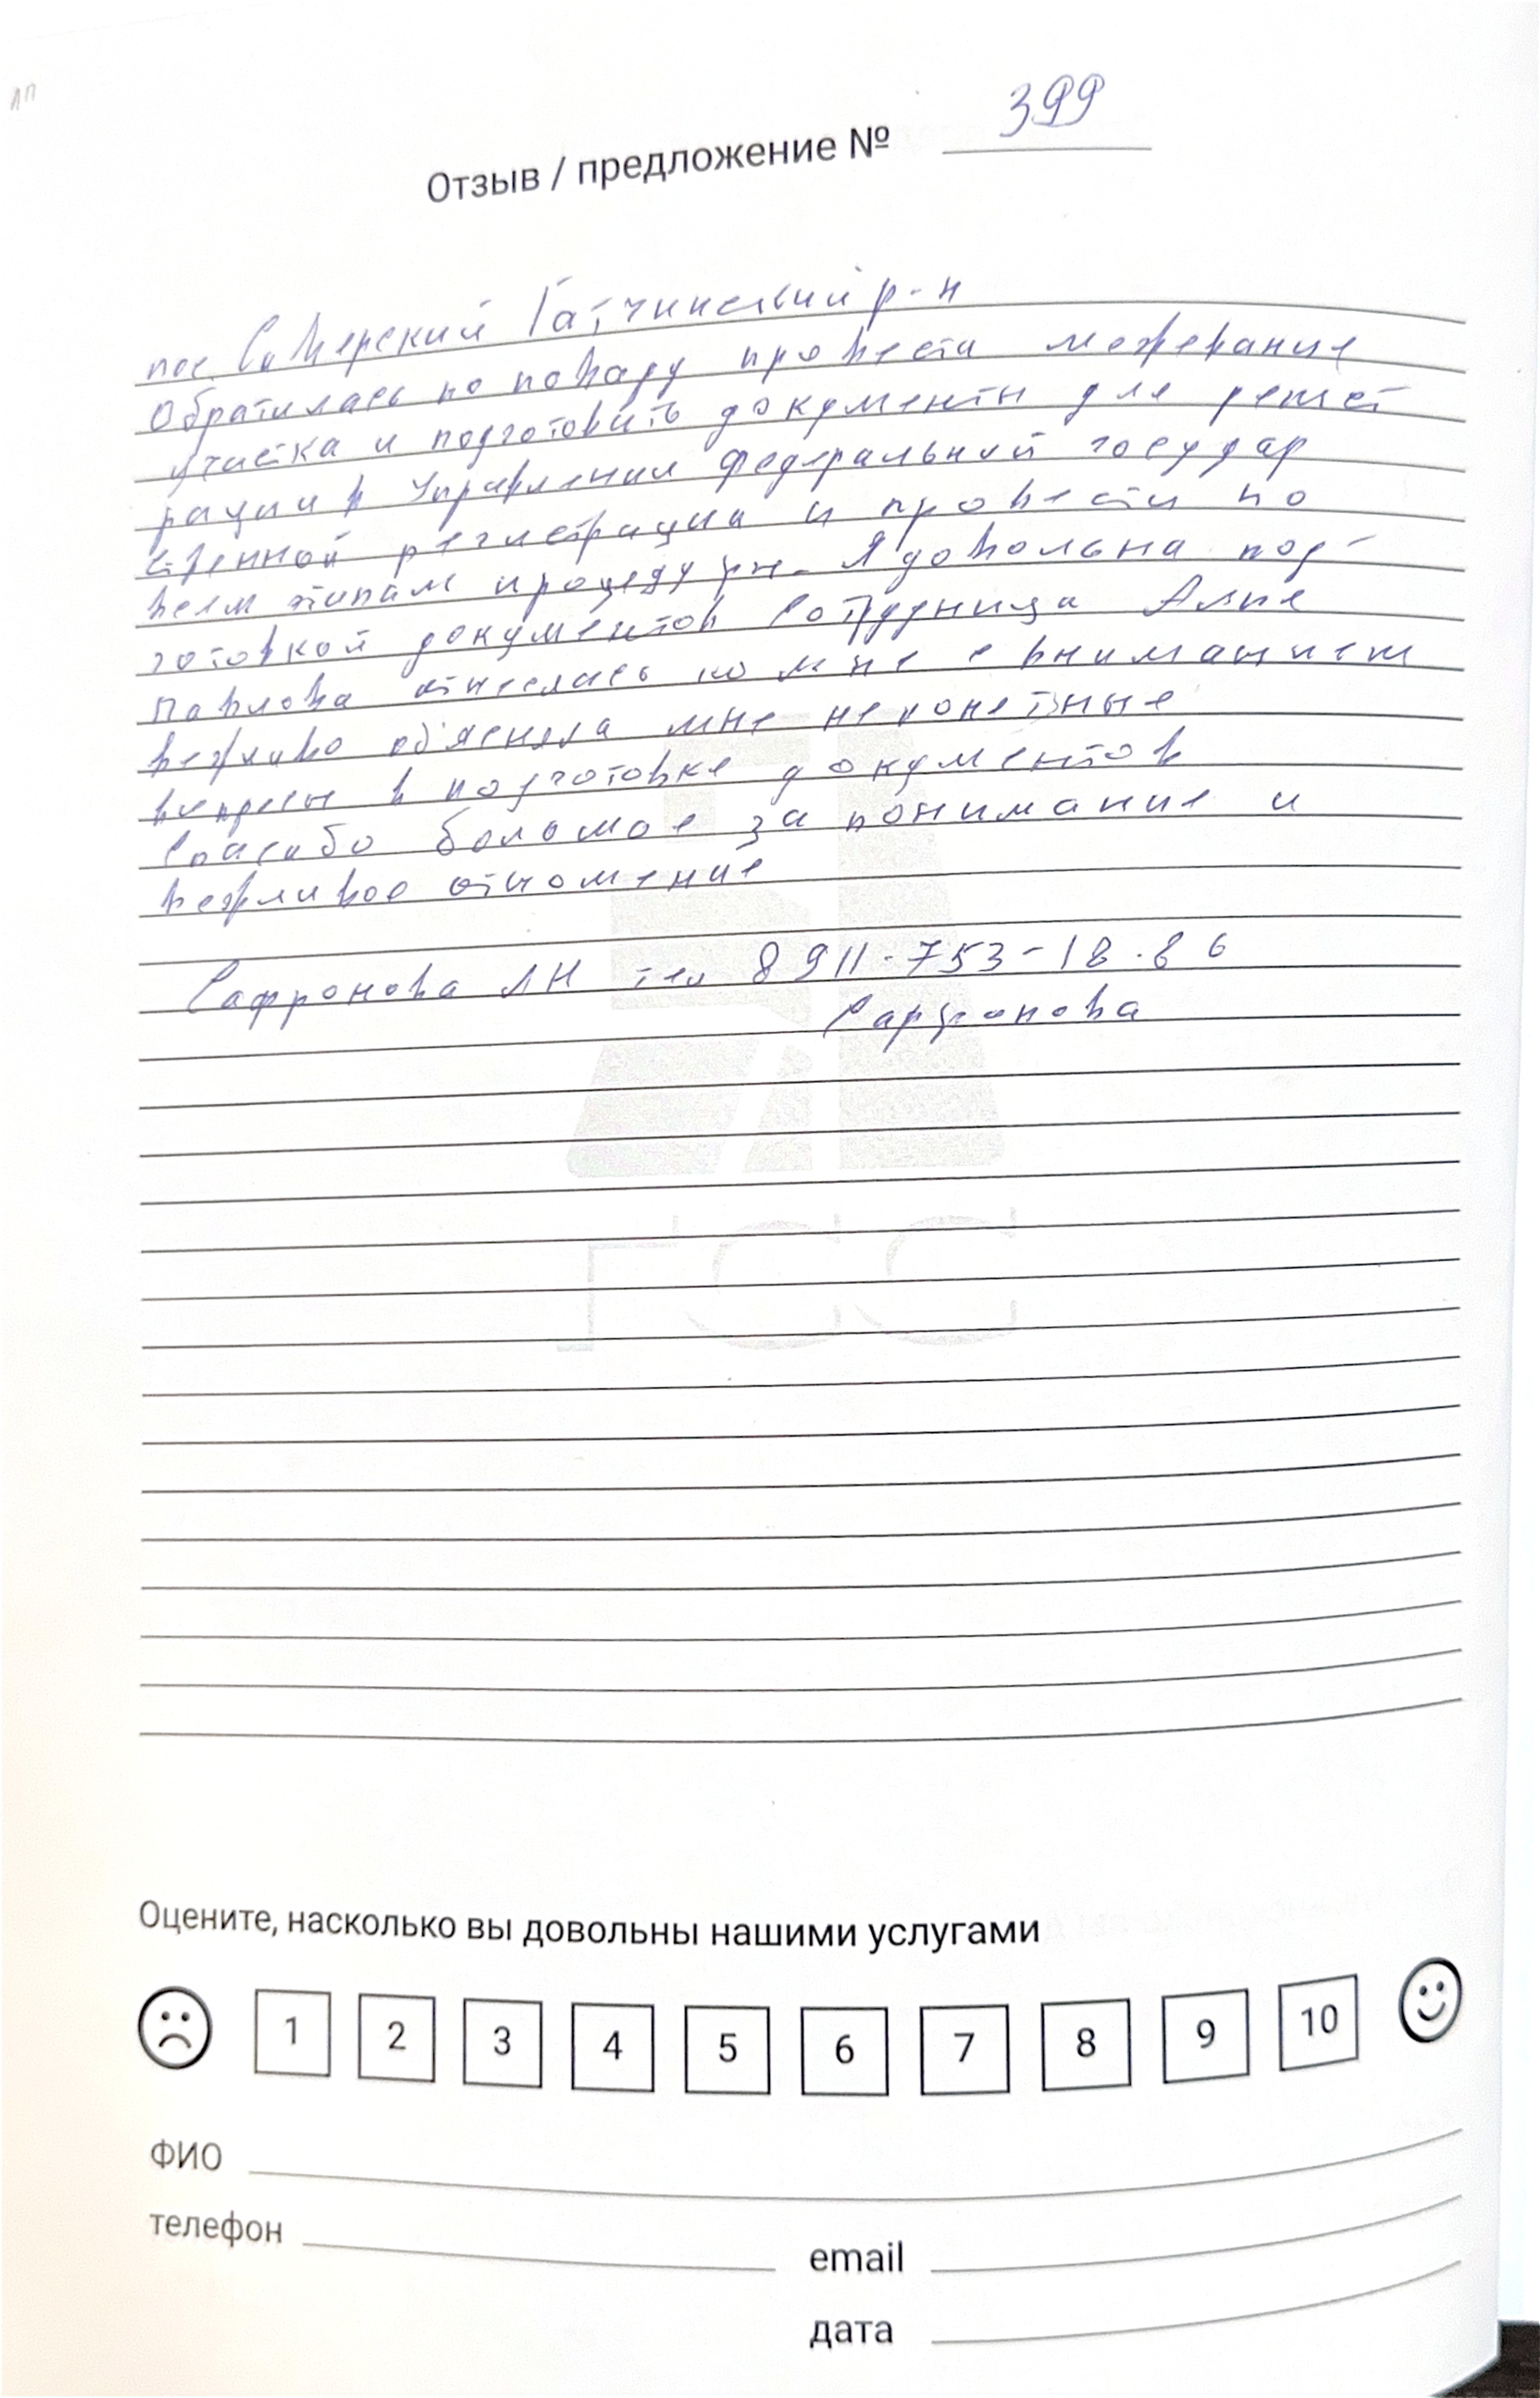 ЛП
Отзыв / предложение № 399
пос. Сиверский Гатчинский р-н
Обратилась по поводу провести межевание
участка и подготовить документы для регист
рации в Управлении Федеральной государ
ственной регистрации и провести по
всем этапам процедуры. Я довольна под-
готовкой документов Сотрудница
Павлова отнеслась ко мне с вниманием
вежливо об'ясняла мне непонятные
вопросы в подготовке документов
Спасибо большое за понимание и
вежливое отношение
Сафронова ЛН тел 8 911-753-18-86
Сафронова
ГСС
Оцените, насколько вы довольны нашими услугами
1 2 3 4 5 6 7 8 9 10
ФИО
телефон
email
дата